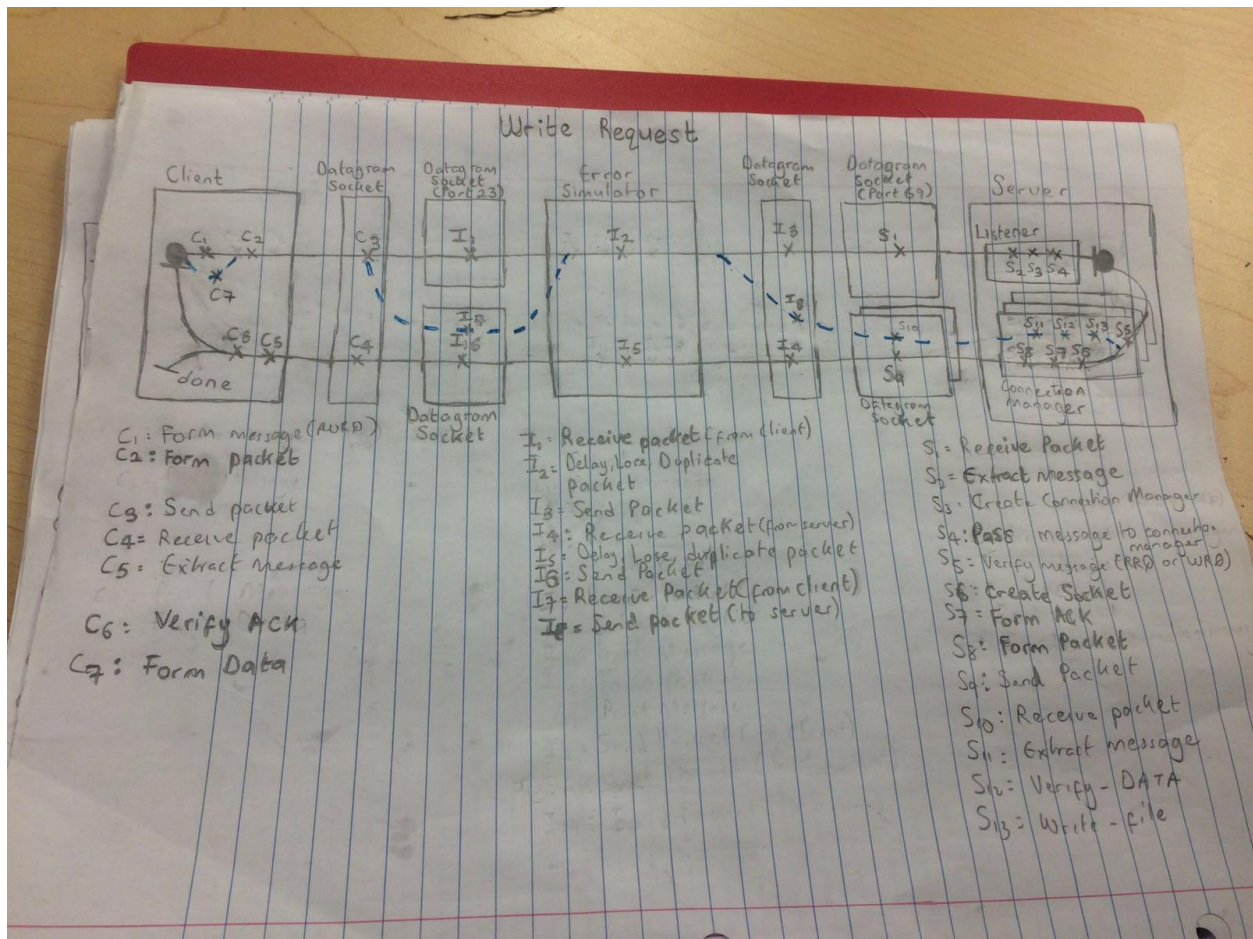 Write Request
Client
Datagram
Socket
Datagram
Socket
(Port 23)
Error
Simulator
Datagram
Socket
Datagram
Socket
(Port 69)
Server
C1
C2
C3
I1
I2
I3
S1
Listener
S2 S3 S4
C7
I7
I8
S10
S11 S12 S13 S5
C6 C5
C4
I6
I5
I4
S9
S8 S7 S6
done
Datagram
Socket
Datagram
Socket
Connection
Manager
C1: Form message
C2: Form packet
C3: Send packet
C4= Receive packet
C5: Extract Message
C6: Verify ACK
C7: Form Data
I1= Receive packet (from client)
I2= Delay, Lose, Duplicate
packet
I3= Send Packet
I4: Receive packet (from server)
I5= Delay, Lose, duplicate packet
I6= Send Packet
I7= Receive Packet (from client)
I8= Send packet (to server)
S1= Receive Packet
S2= Extract message
S3: Create Connection Manager
S4: Pass message to connection
manager
S5: Verify message (RRQ or WRQ)
S6: Create Socket
S7= Form ACK
S8: Form Packet
S9: Send Packet
S10: Receive packet
S11: Extract message
S12= Verify-DATA
S13= Write-file